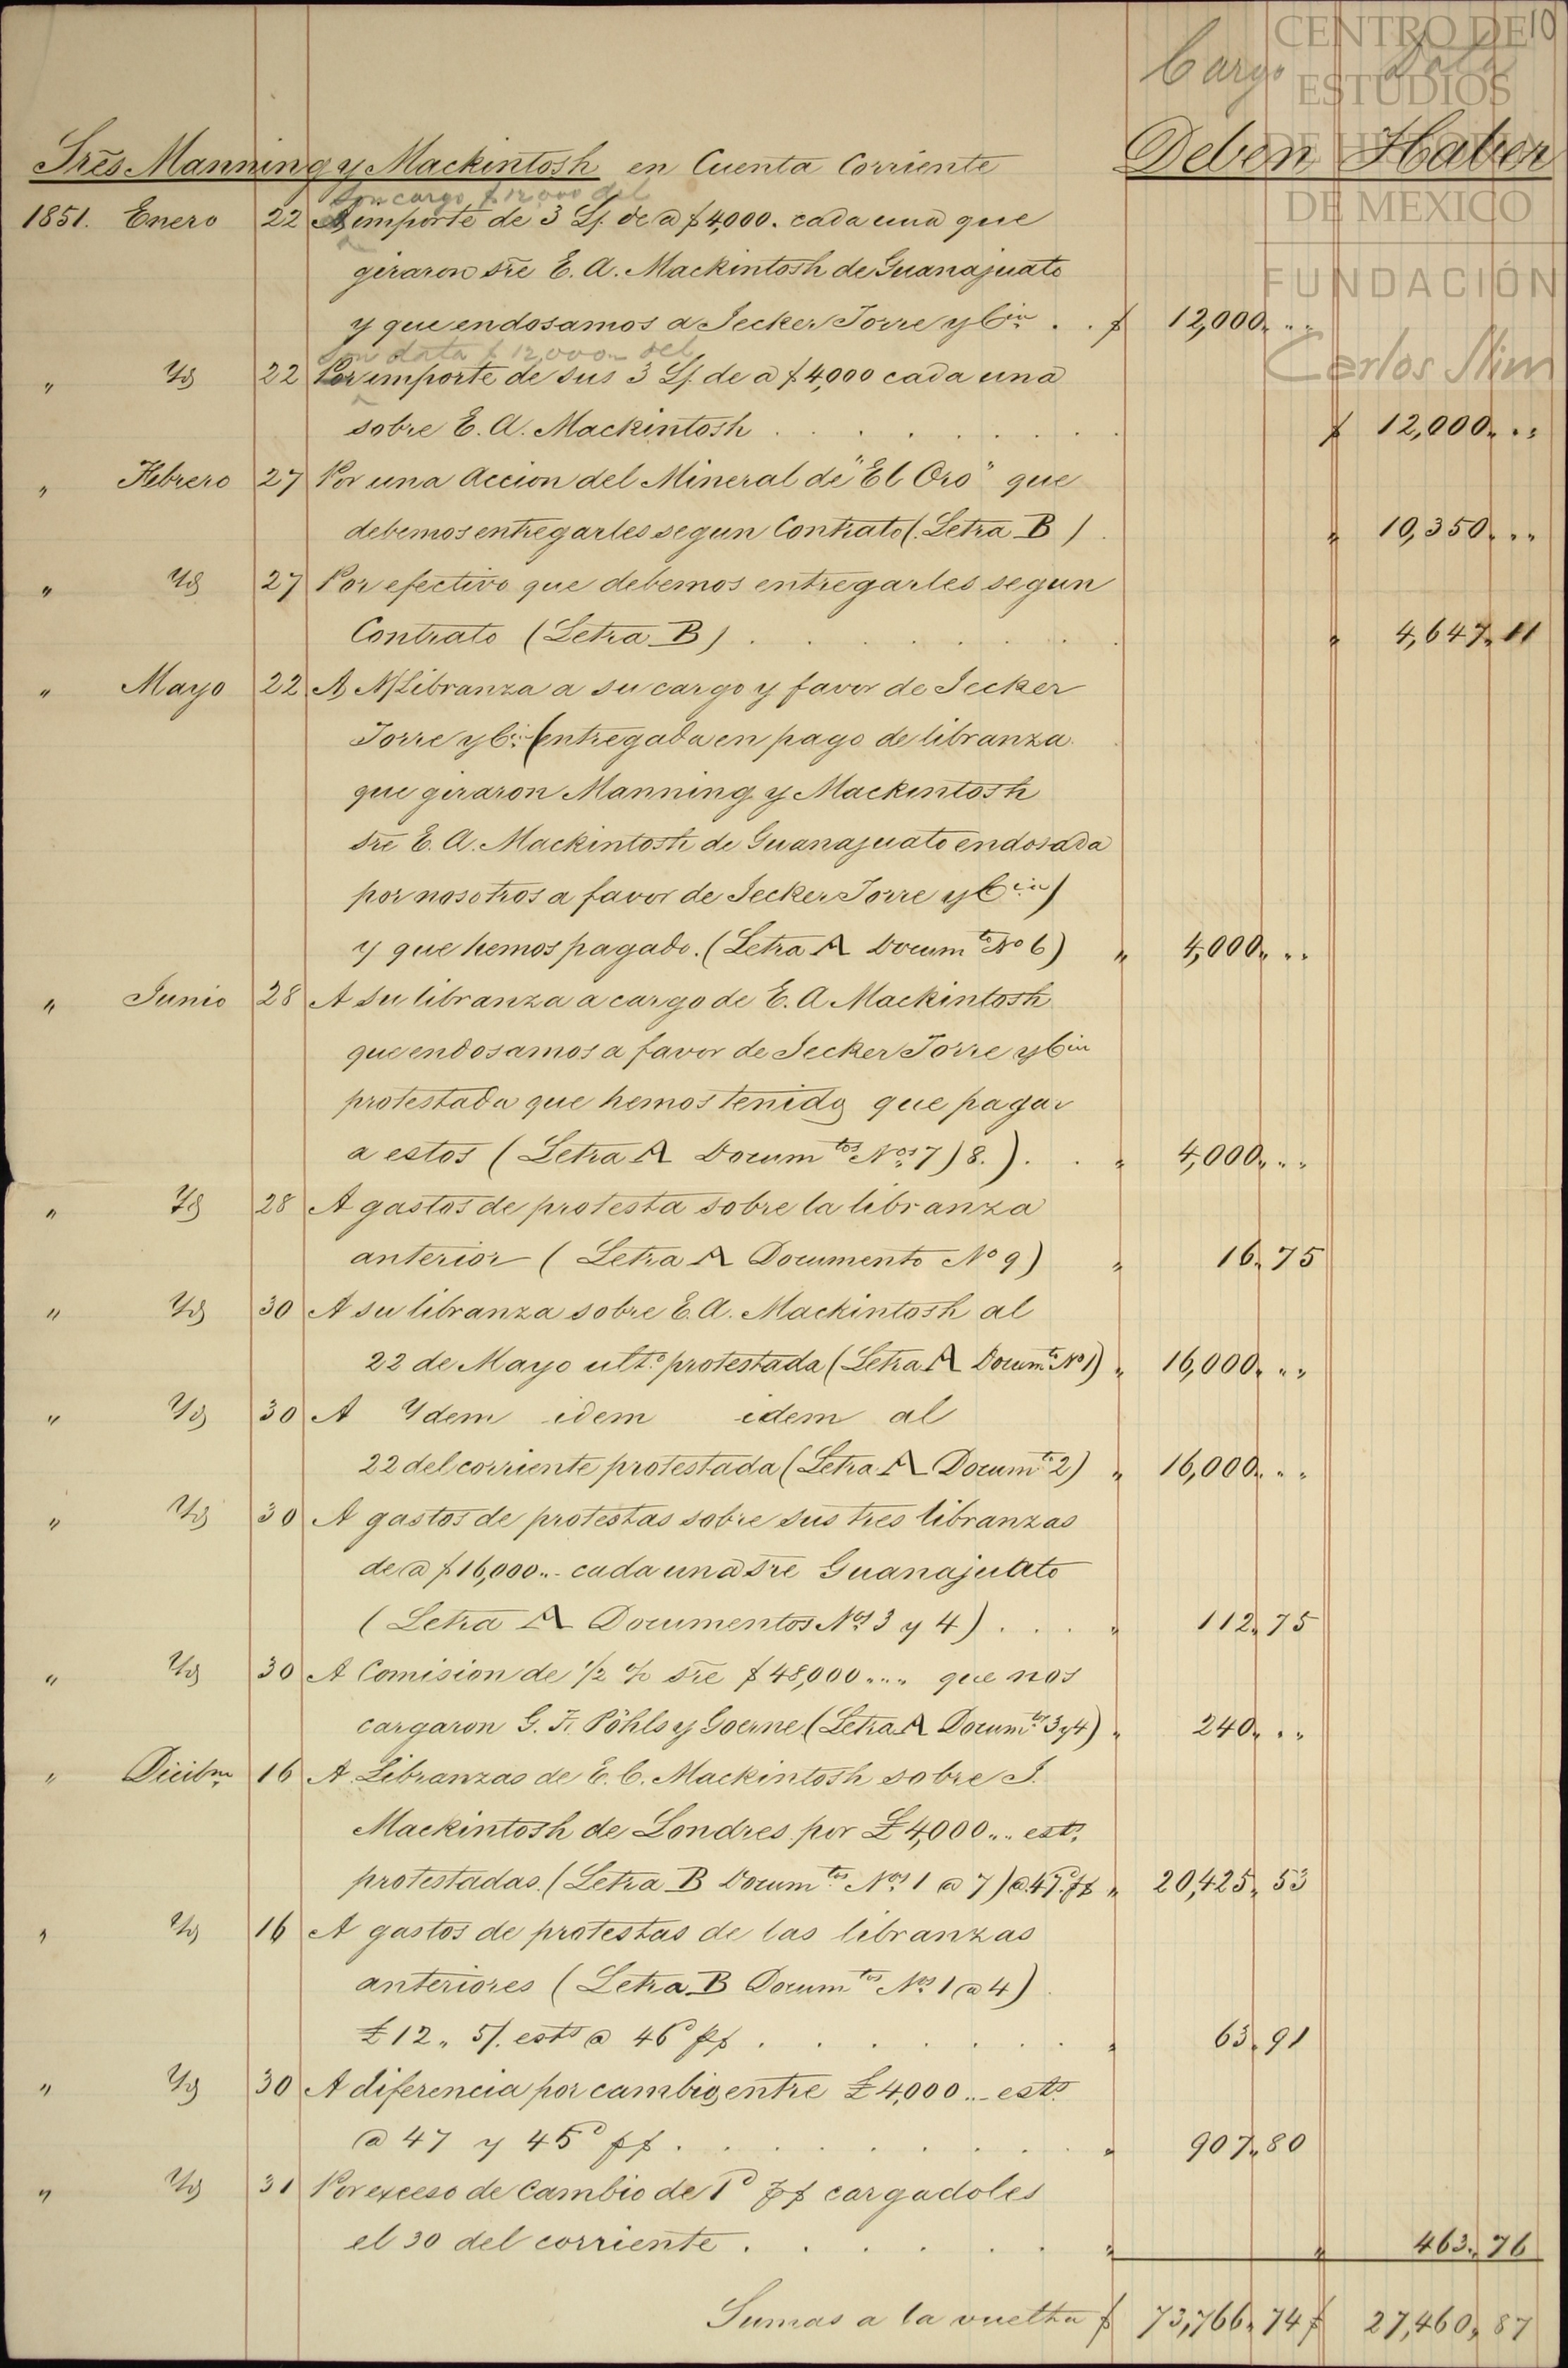 CENTRO DE 10
Cargo Data
ESTUDIOS
DE HISTORIA
DE MEXICO
FUNDACIÓN
Carlos Slim
Sres Manning y Mackintosh en Cuenta Corriente Deben Haber
Son cargo $12,000 del
1851. Enero 22 A importe de 3 L/. de a $4,000. cada una que
giraron sre E. A. Mackintosh de Guanajuato
y que endosamos a Jecker Torre y Cia . . $ 12,000,, ..
Son data $12,000 del
" Id 22 Por importe de sus 3 L/. de a $4,000 cada una
sobre E. A. Mackintosh . . . . . . . $ 12,000,, ..
" Febrero 27 Por una Accion del Mineral de "El Oro" que
debemos entregarles segun Contrato (Letra B) . " 10,350,, ..
" Id 27 Por efectivo que debemos entregarles segun
Contrato (Letra B) . . . . . . . " 4,647,, 11
" Mayo 22 A N/Libranza a su cargo y favor de Jecker
Torre y Ca (entregada en pago de libranza
que giraron Manning y Mackintosh
sre E. A. Mackintosh de Guanajuato endosada
por nosotros a favor de Jecker Torre y Cia)
y que hemos pagado. (Letra A Documto No 6) " 4,000,, ..
" Junio 28 A su libranza a cargo de E. A Mackintosh
que endosamos a favor de Jecker Torre y Cia
protestada que hemos tenido que pagar
a estos (Letra A Documtos Nos 7) 8.) . . " 4,000,, ..
" Id 28 A gastos de protesta sobre la libranza
anterior (Letra A Documento No 9) " 16,, 75
" Id 30 A su libranza sobre E. A. Mackintosh al
22 de Mayo ulto. protestada (Letra A Documto No 1) " 16,000,, ..
" Id 30 A Ydem idem idem al
22 del corriente protestada (Letra A Documto 2) " 16,000,, ..
" Id 30 A gastos de protestas sobre sus tres libranzas
de a $16,000.. cada una sre Guanajuato
(Letra A Documentos Nos 3 y 4) . . . . " 112,, 75
" Id 30 A Comision de 1/2 % sre $48,000.... que nos
cargaron G. F. Pöhls y Goerne (Letra A Documtos 3 y 4) " 240,, ..
" Dicibre 16 A Libranzas de E. C. Mackintosh sobre J.
Mackintosh de Londres por £4,000.. ests.
protestadas. (Letra B Documtos Nos 1 a 7) @ 47d p$ " 20,425,, 53
" Id 16 A gastos de protestas de las libranzas
anteriores (Letra B Documtos Nos 1 a 4)
£12,, 5/. ests @ 46d p$ . . . . . . . " 63,, 91
" Id 30 A diferencia por cambio entre £4,000.. ests.
@ 47 y 45d p$ . . . . . . . . " 907,, 80
" Id 31 Por exceso de Cambio de 1d p$ cargadoles
el 30 del corriente . . . . . . " " 463,, 76
Sumas a la vuelta $ 73,766,, 74 $ 27,460,, 87